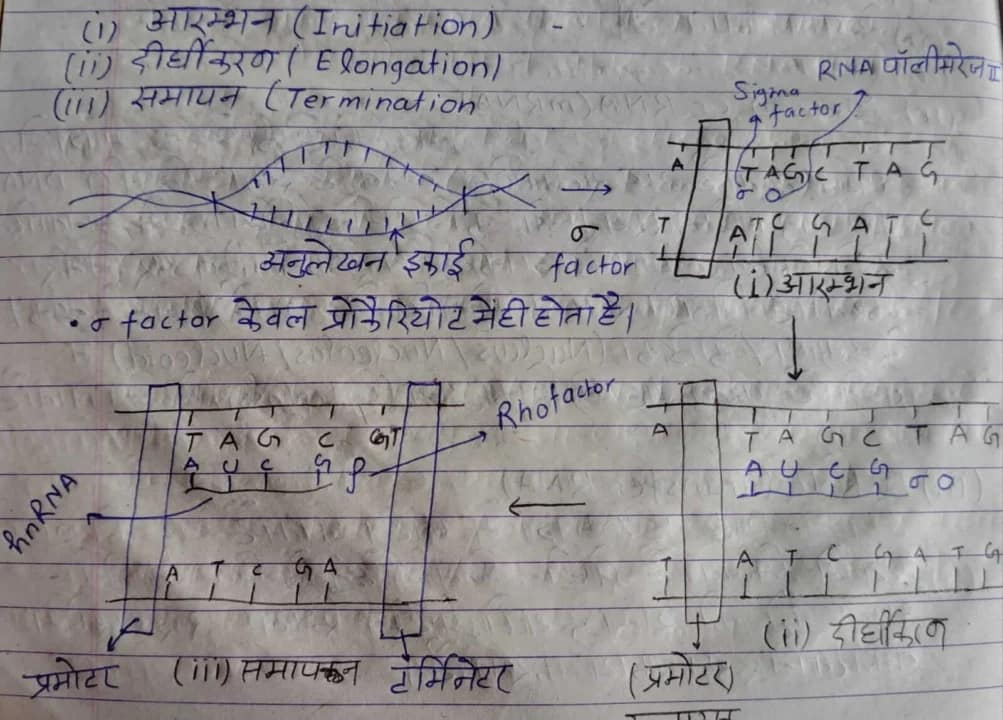 (i) आरम्भन (Initiation) -
(ii) दीर्घीकरण ( Elongation)
(iii) समापन (Termination
RNA पॉलीमरेज II
Sigma
factor
A T A G C T A G
σ O
T A T C G A T C
σ
factor
अनुलेखन इकाई
(i) आरम्भन
• σ factor केवल प्रोकैरियोट में ही होता है।
Rho factor
T A G C GT
A U C G ρ
hnRNA
A T C G A
प्रमोटर
(iii) समापन
टर्मिनेटर
A T A G C T A G
A U C G σ O
T A T C G A T G
(ii) दीर्घीकरण
(प्रमोटर)